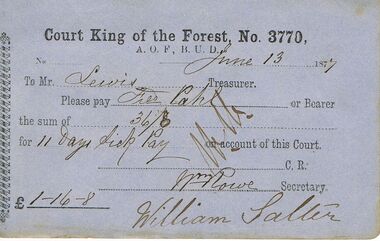 Court King of the Forest, No. 3770,
A. O. F., B. U. D.
No June 13 1877
To Mr. Lewis Treasurer.
Please pay or Bearer
the sum of 36/8
for 11 Days Sick Pay on account of this Court.
C. R.
Wm Rowe Secretary.
£ 1-16-8
William Salter